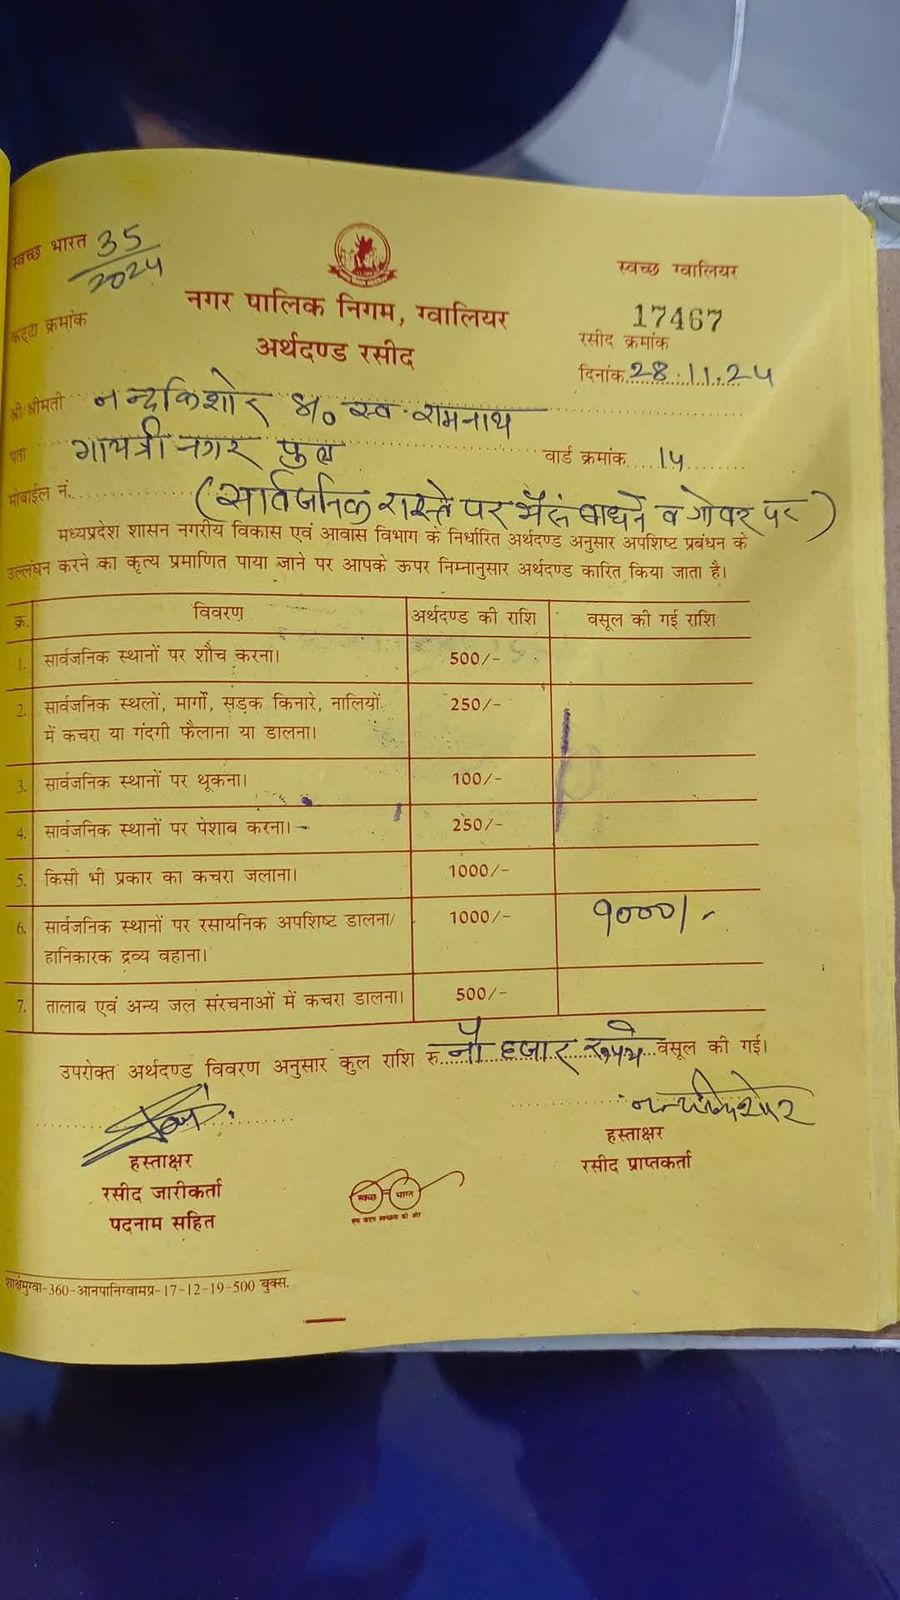 स्वच्छ भारत 35/2024
स्वच्छ ग्वालियर
नगर पालिक निगम, ग्वालियर
कट्टा क्रमांक
17467
रसीद क्रमांक
अर्थदण्ड रसीद
दिनांक 28.11.24
श्री/श्रीमती नन्दकिशोर S/o स्व. रामनाथ
पता गायत्री नगर पुल वार्ड क्रमांक 14
मोबाईल नं. (सार्वजनिक रास्ते पर भैंस बाधने व गोबर पर)
मध्यप्रदेश शासन नगरीय विकास एवं आवास विभाग के निर्धारित अर्थदण्ड अनुसार अपशिष्ट प्रबंधन के
उल्लंघन करने का कृत्य प्रमाणित पाया जाने पर आपके ऊपर निम्नानुसार अर्थदण्ड कारित किया जाता है।
क्र. विवरण अर्थदण्ड की राशि वसूल की गई राशि
1. सार्वजनिक स्थानों पर शौच करना। 500/-
2. सार्वजनिक स्थलों, मार्गों, सड़क किनारे, नालियों 250/-
में कचरा या गंदगी फैलाना या डालना।
3. सार्वजनिक स्थानों पर थूकना। 100/-
4. सार्वजनिक स्थानों पर पेशाब करना। 250/-
5. किसी भी प्रकार का कचरा जलाना। 1000/-
6. सार्वजनिक स्थानों पर रसायनिक अपशिष्ट डालना/ 1000/- १०००/-
हानिकारक द्रव्य वहाना।
7. तालाब एवं अन्य जल संरचनाओं में कचरा डालना। 500/-
उपरोक्त अर्थदण्ड विवरण अनुसार कुल राशि रु. नौ हजार रुपये वसूल की गई।
नन्दकिशोर
हस्ताक्षर
हस्ताक्षर
रसीद प्राप्तकर्ता
रसीद जारीकर्ता
पदनाम सहित
स्वच्छ भारत
एक कदम स्वच्छता की ओर
शाक्षेमुग्वा-360-आनपानिग्वामप्र-17-12-19-500 बुक्स.